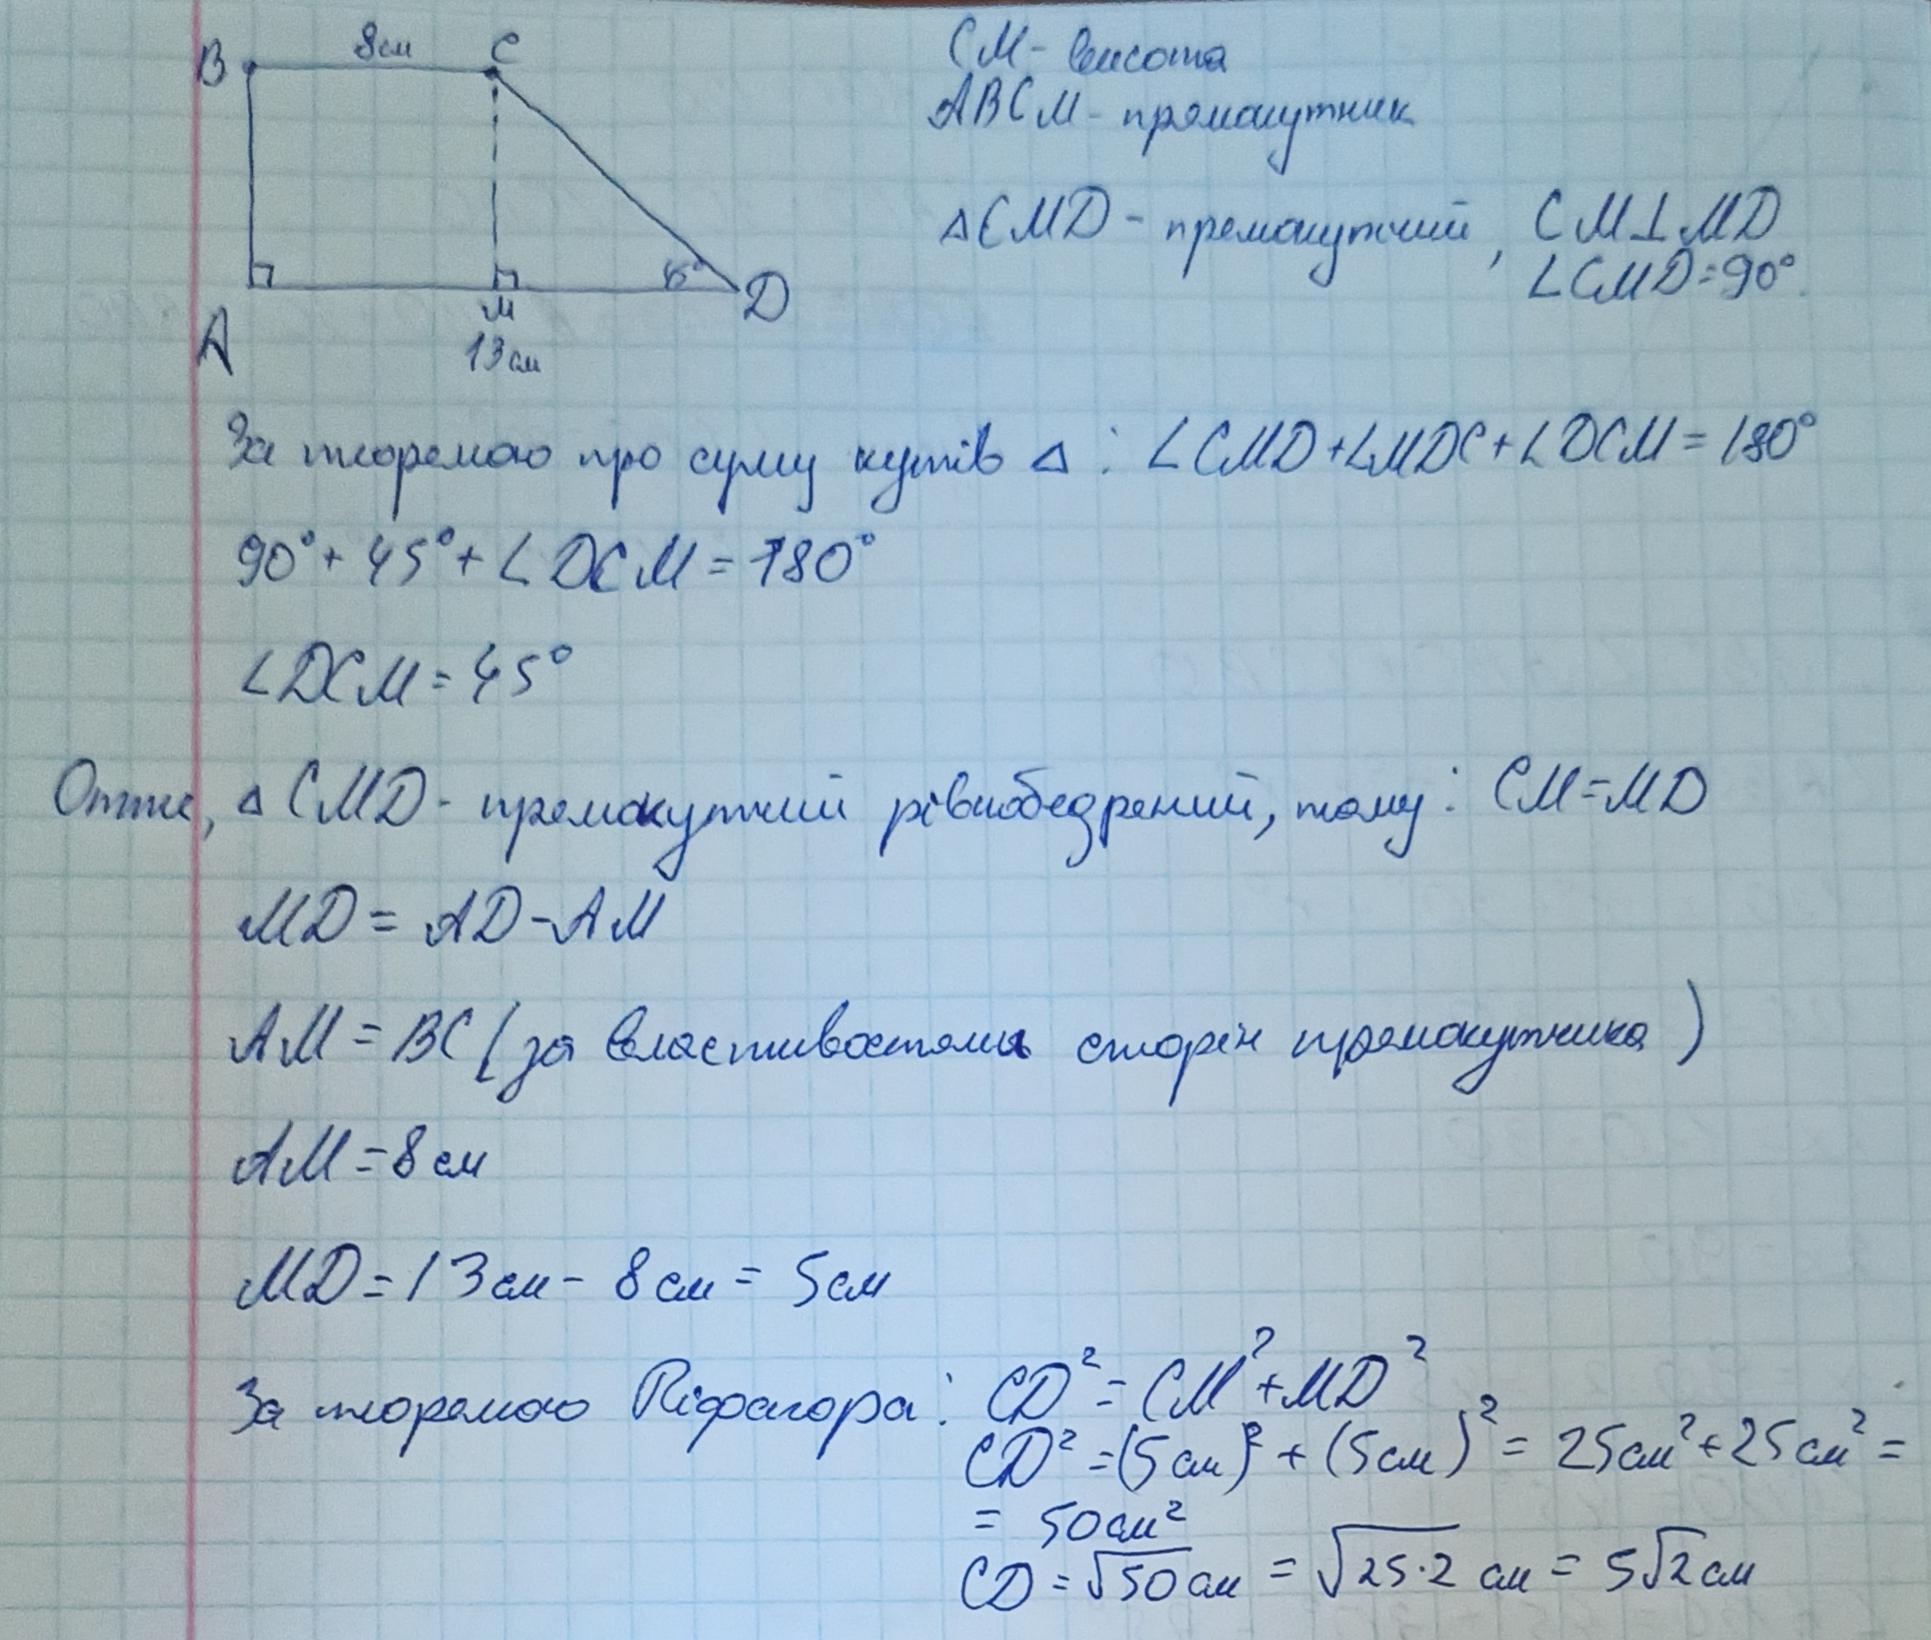 B 8см C
A M D 45°
13см
CM - висота
ABCM - прямокутник
△CMD - прямокутний, CM⊥MD
∠CMD=90°.
За теоремою про суму кутів △: ∠CMD+∠MDC+∠DCM=180°
90°+45°+∠DCM=180°
∠DCM=45°
Отже, △CMD - прямокутний рівнобедрений, тому: CM=MD
MD = AD-AM
AM = BC (за властивостями сторін прямокутника)
AM=8см
MD=13см-8см=5см
За теоремою Піфагора: CD²=CM²+MD²
CD²=(5см)²+(5см)²=25см²+25см²=
= 50см²
CD=√50см=√25·2 см=5√2см